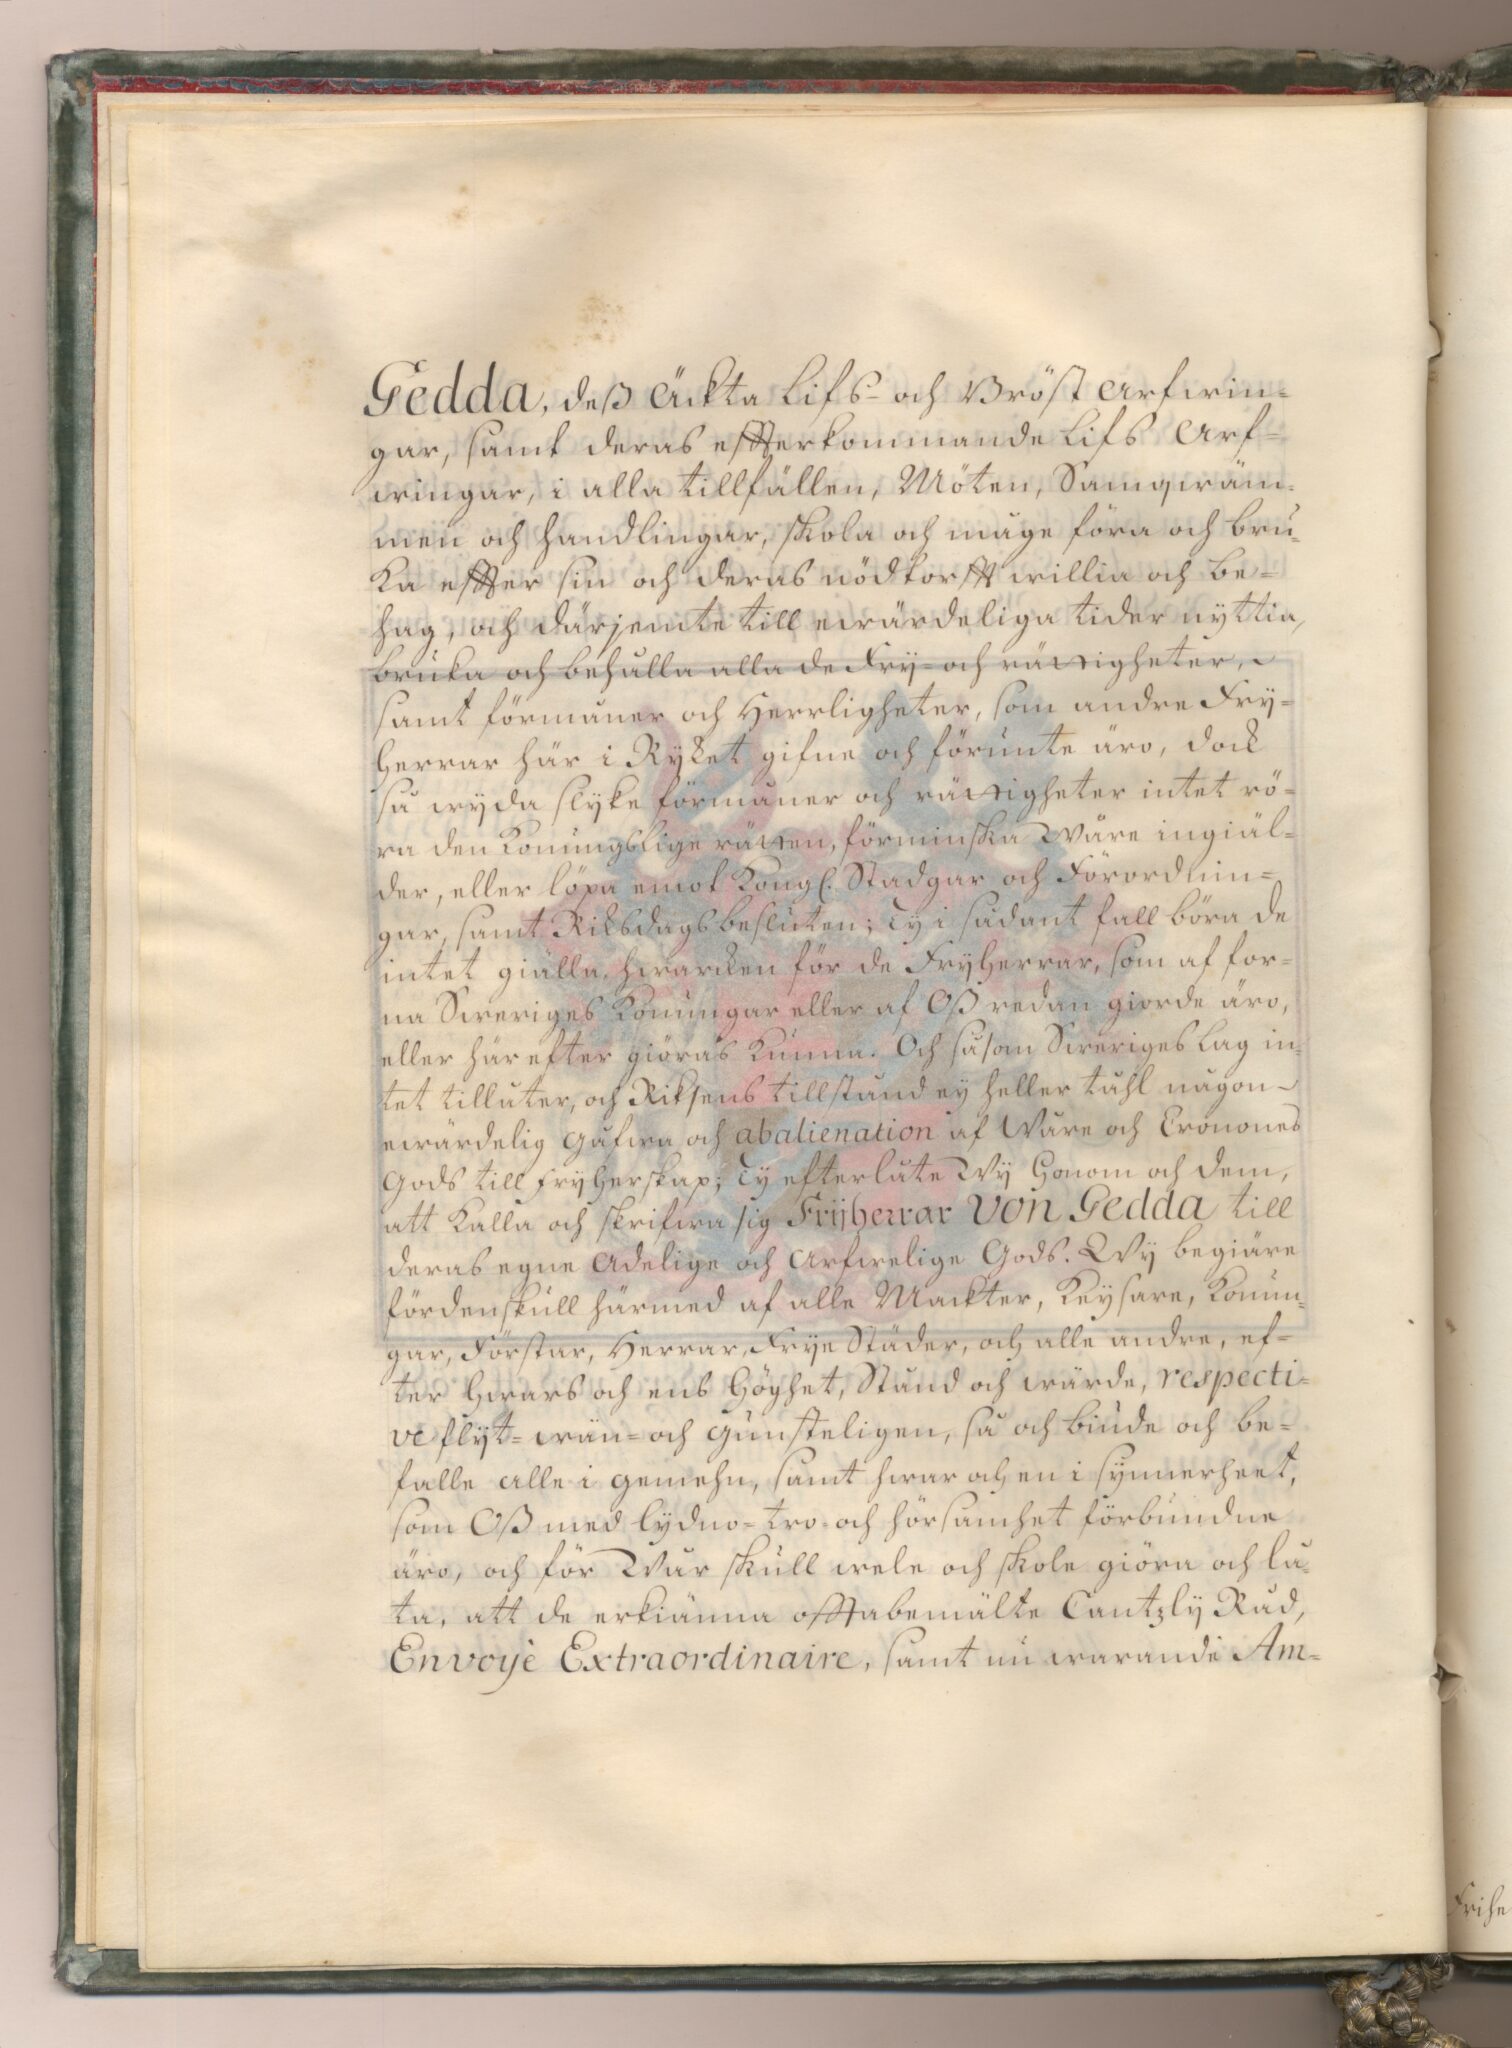 Gedda, deß Äckta Lifs- och Bröst Arfwin=
gar, samt deras effterkommande Lifs Arf=
wingar, i alla tillfällen, Möten, Samqwäm=
men och handlingar, skola och måge föra och bru=
ka effter sin och deras nödtorfft willia och be=
hag, och därjemte till ewärdeliga tider nyttia,
bruka och behålla alla de Fry= och rättigheter,
samt förmåner och Herrligheter, som andre Fry=
Herrar här i Ryket gifne och förunte äro, dock
så wyda slyke förmåner och rättigheter intet rö=
ra den Konungslige rätten, förminska Wåre ingiäl=
der, eller löpa emot Kongl. Stadgar och Förordnin=
gar, samt Riksdagsbesluten; Ty i sådant fall böra de
intet giälla, hwarcken för de FryHerrar, som af for=
na Sweriges Konungar eller af Oß redan giorde äro,
eller här efter giöras kunna. Och såsom Sweriges Lag in=
tet tillåter, och Riksens tillstånd ey heller tåhl någon
ewärdelig Gåfwa och abalienation af Wåre och Cronones
Gods till FryHerskap; Ty efterlåte Wy Honom och dem,
att kalla och skrifwa sig Frijherrar von Gedda till
deras egne Adelige och Arfwelige Gods. Wy begiäre
fördenskull härmed af alle Mackter, Keysare, Konun=
gar, Förstar, Herrar, Frye Städer, och alle andre, ef=
ter hwars och ens Höghet, Stånd och wärde, respecti=
ve flyt= wän= och gunsteligen, så och biude och be=
falle alle i gemehn, samt hwar och en i synnerheet,
som Oß med lydno= tro= och hörsamhet förbundne
äro, och för Wår skull wele och skole giöra och lå=
ta, att de erkiänna offtabemälte Cantzly Råd,
Envoyè Extraordinaire, samt nu warande Am=
Frihe